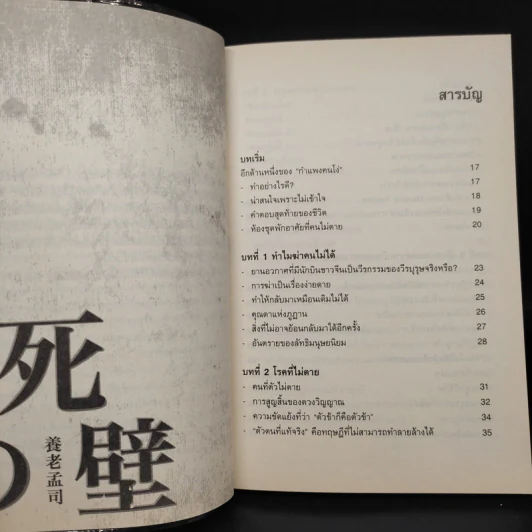 死
の壁
養老孟司
สารบัญ
บทเริ่ม
อีกด้านหนึ่งของ "กำแพงคนโง่" 17
- ทำอย่างไรดี? 17
- น่าสนใจเพราะไม่เข้าใจ 18
- คำตอบสุดท้ายของชีวิต 19
- ห้องชุดพักอาศัยที่คนไม่ตาย 20
บทที่ 1 ทำไมฆ่าคนไม่ได้
- ยานอวกาศที่มีนักบินชาวจีนเป็นวีรกรรมของวีรบุรุษจริงหรือ? 23
- การฆ่าเป็นเรื่องง่ายดาย 24
- ทำให้กลับมาเหมือนเดิมไม่ได้ 25
- คุณตาแห่งภูฏาน 26
- สิ่งที่ไม่อาจย้อนกลับมาได้อีกครั้ง 27
- อันตรายของลัทธิมนุษยนิยม 28
บทที่ 2 โรคที่ไม่ตาย
- คนที่ตัวไม่ตาย 31
- การสูญสิ้นของดวงวิญญาณ 32
- ความขัดแย้งที่ว่า "ตัวข้าก็คือตัวข้า" 34
- "ตัวตนที่แท้จริง" คือทฤษฎีที่ไม่สามารถทำลายล้างได้ 35